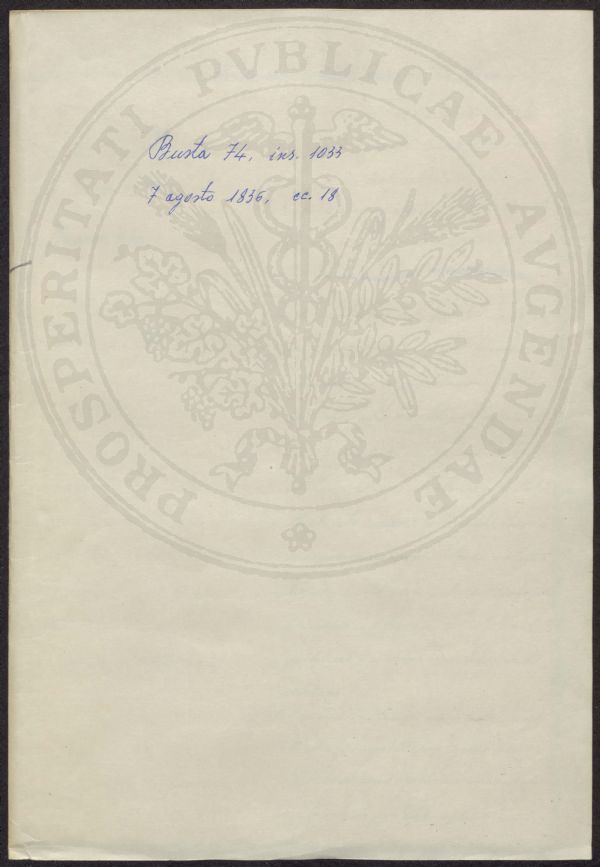 Busta 74, ins. 1033
7 agosto 1836, cc. 18
PROSPERITATI PVBLICAE AVGENDAE